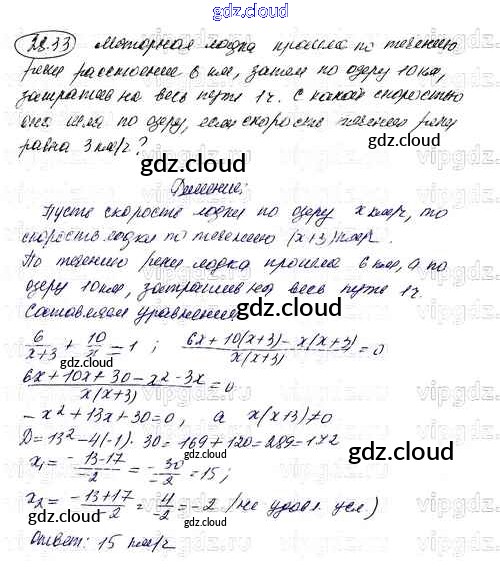 gdz.cloud
28.33 Моторная лодка прошла по течению
реки расстояние 6 км, затем по озеру 10 км,
затратив на весь путь 1 ч. С какой скоростью
она шла по озеру, если скорость течения реки
равна 3 км/ч?
gdz.cloud
Решение:
Пусть скорость лодки по озеру x км/ч, то
скорость лодки по течению (x+3) км/ч.
По течению реки лодка прошла 6 км, а по
озеру 10 км, затратив на весь путь 1 ч.
gdz.cloud
Составляем уравнение:
6/(x+3) + 10/x = 1 ; (6x + 10(x+3) - x(x+3))/(x(x+3)) = 0
gdz.cloud
(6x + 10x + 30 - x² - 3x)/(x(x+3)) = 0
-x² + 13x + 30 = 0, а x(x+3) ≠ 0
D = 13² - 4(-1) · 30 = 169 + 120 = 289 = 17²
gdz.cloud
x₁ = (-13-17)/-2 = -30/-2 = 15;
x₂ = (-13+17)/-2 = 4/-2 = -2 (не удовл. усл.)
gdz.cloud
Ответ: 15 км/ч
gdz.cloud